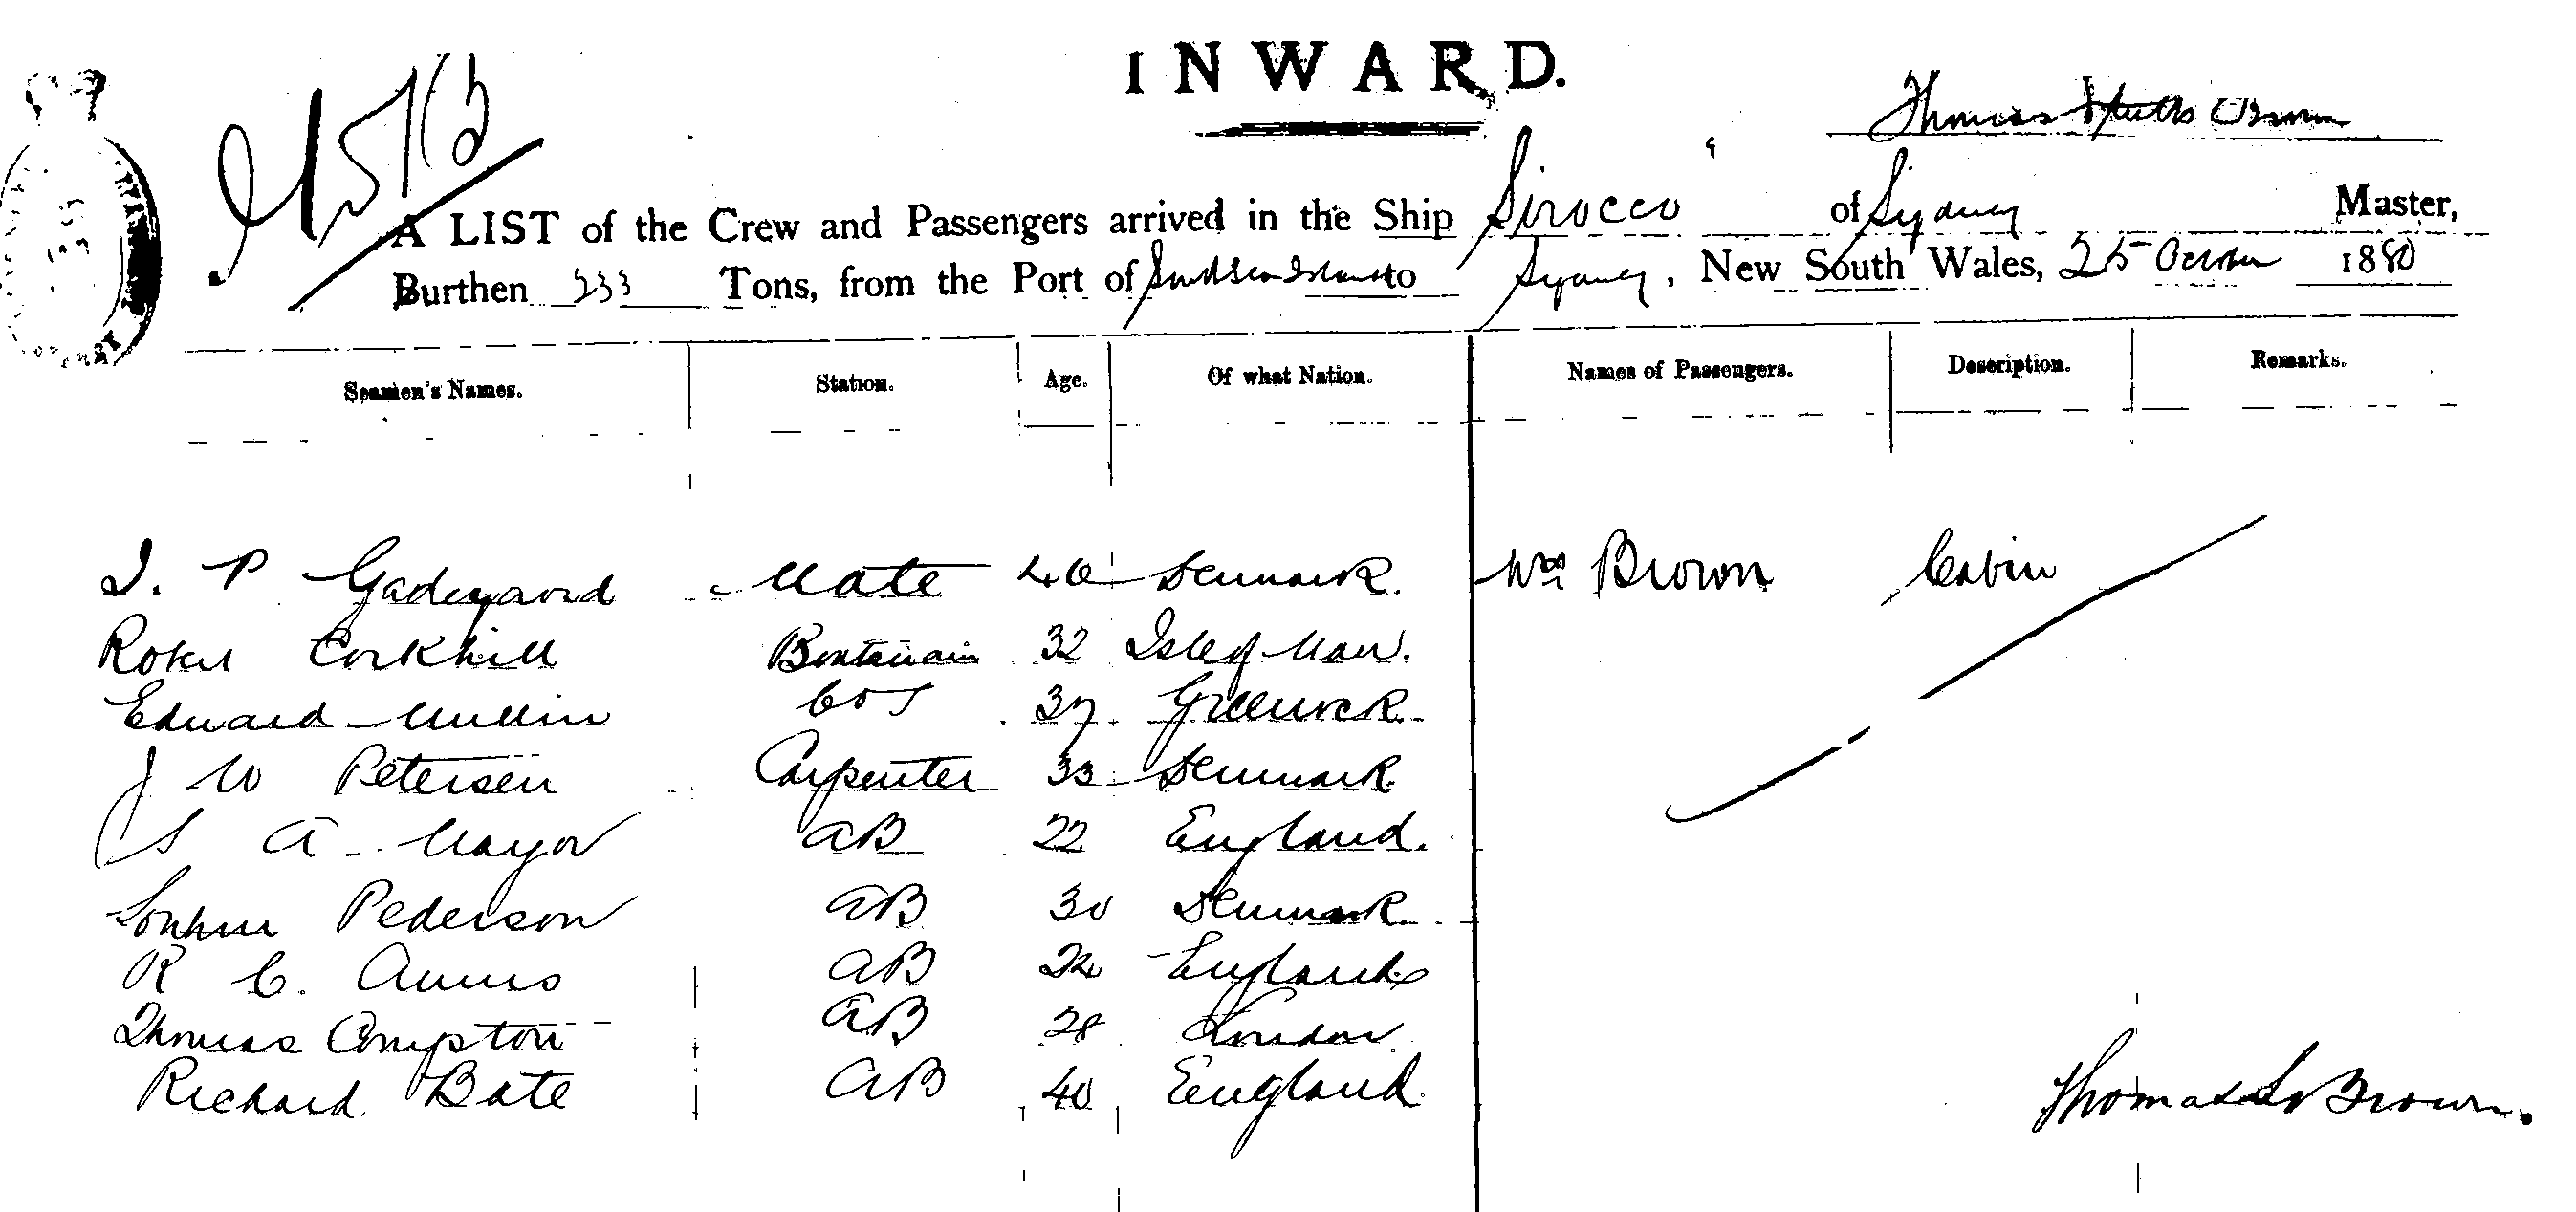 INWARD.
Thomas Brown
A LIST of the Crew and Passengers arrived in the Ship Sirocco of Sydney Master,
Burthen 233 Tons, from the Port of South Sea Islands to Sydney, New South Wales, 25 October 1880
Seamen's Names. Station. Age. Of what Nation. Names of Passengers. Description. Remarks.
P Mate 40 Denmark. Wm Brown Cabin
Robert Corkhill Boatswain 32 Isle of Man.
Edward Mullin 37 Greenock.
J W Petersen Carpenter 33 Denmark
A Mayor AB 22 England.
Pederson AB 30 Denmark.
R C. Annis AB 24 England
Thomas Compton AB 28 London
Richard Bate AB 40 England
Thomas S Brown.